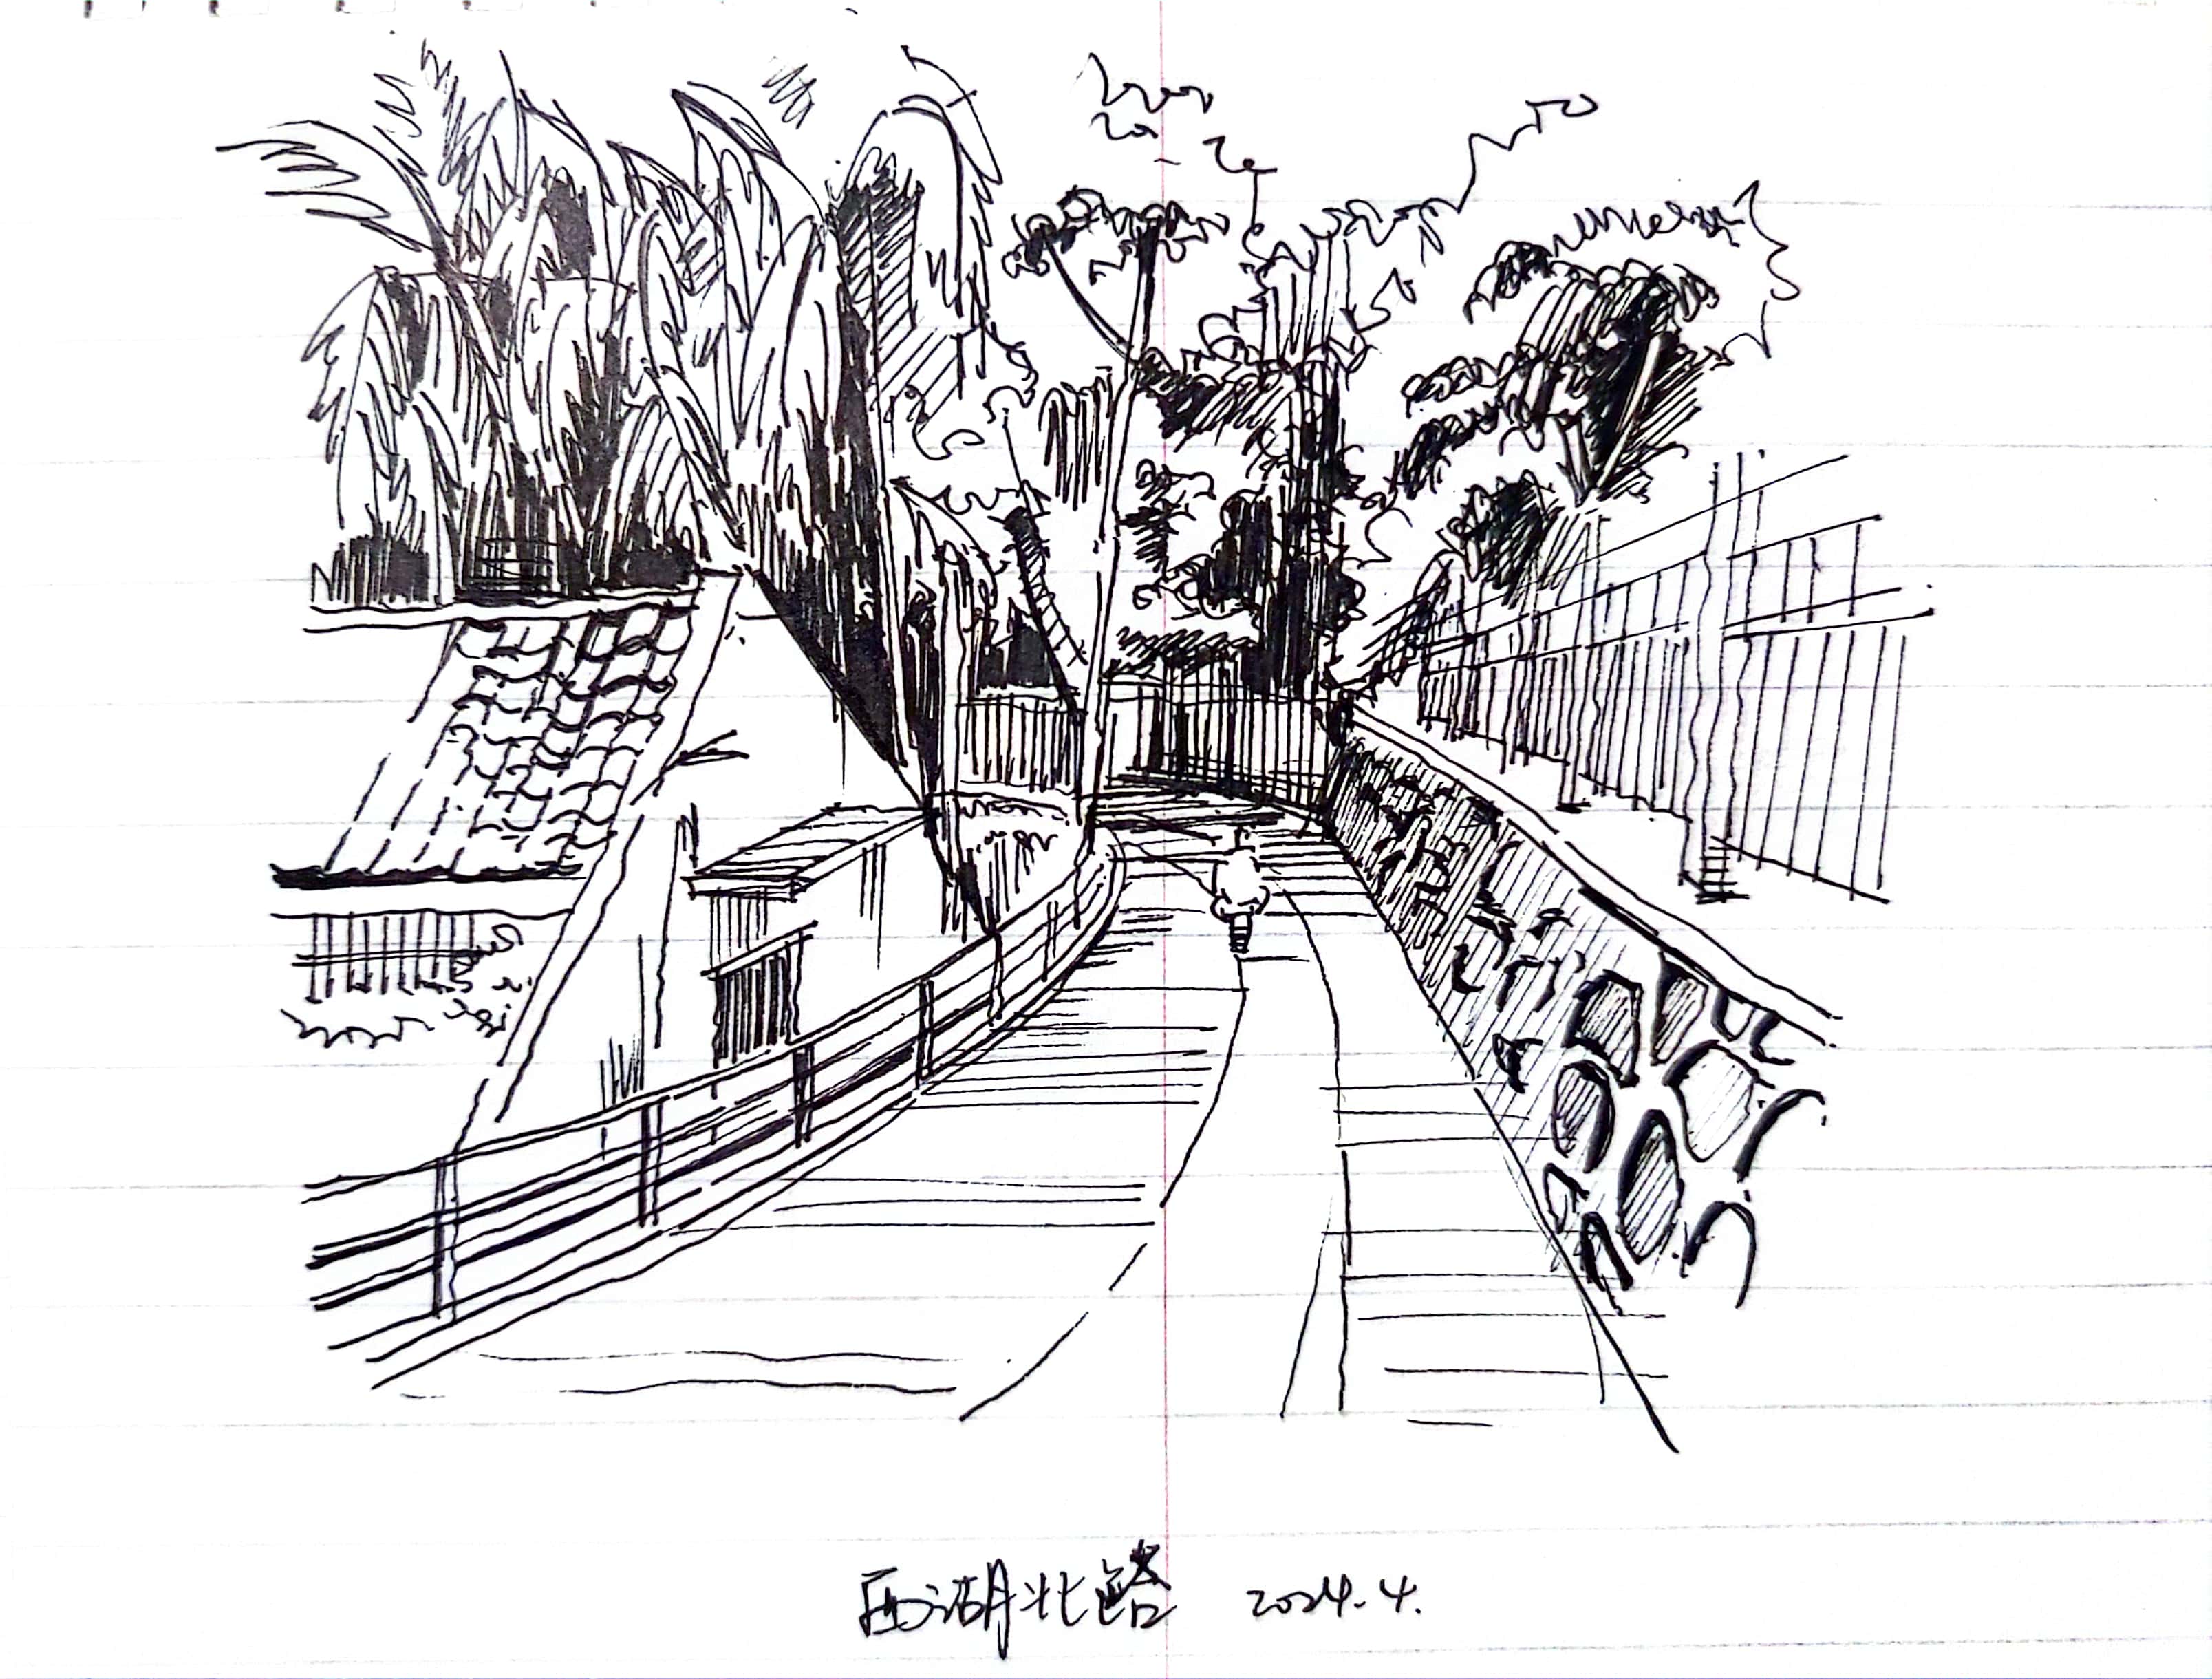 西湖北路 2024.4.